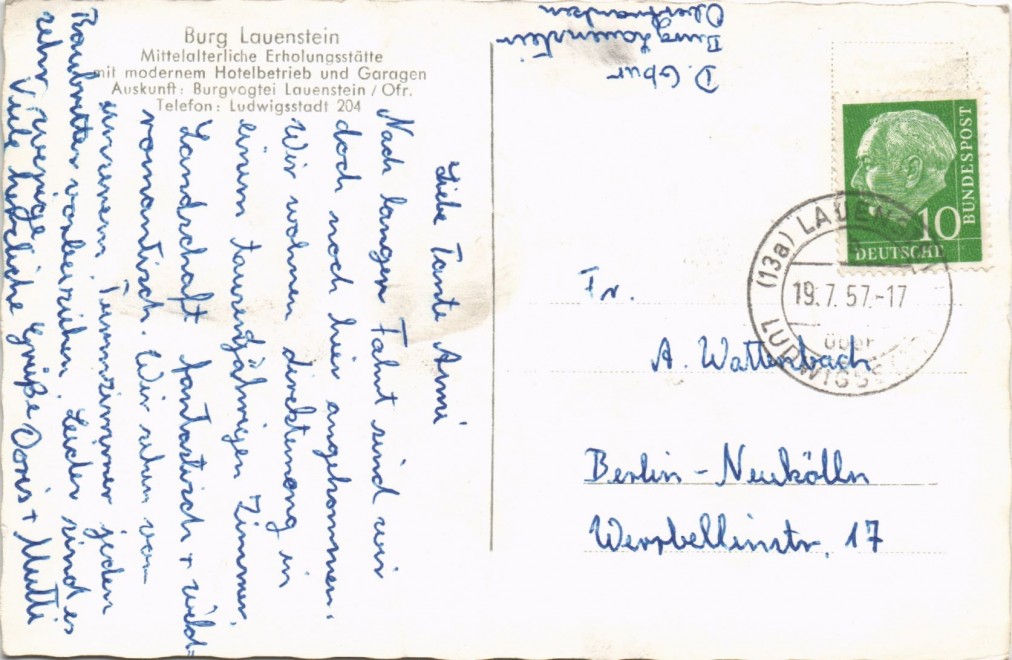 Burg Lauenstein
Mittelalterliche Erholungsstätte
mit modernem Hotelbetrieb und Garagen
Auskunft: Burgvogtei Lauenstein / Ofr.
Telefon: Ludwigsstadt 204
Liebe Tante Anni
Nach langer Fahrt sind wir
doch noch hier angekommen.
Wir wohnen direktemang in
einem tausendjährigen Zimmer,
Landschaft fantastisch + wild=
romantisch. Wir sehen von
unserem Turmzimmer jeden
Raubritter vorbeiziehen. Leider sind es
sehr wenige
Viele herzliche Grüße Doris + Mutti
Burg Lauenstein
Oberfranken
10
DEUTSCHE
BUNDESPOST
(13a) LAUENS
19.7.57.-17
über
LUDWIGSS
Fr.
A. Wattenbach
Berlin-Neukölln
Werbellinstr. 17